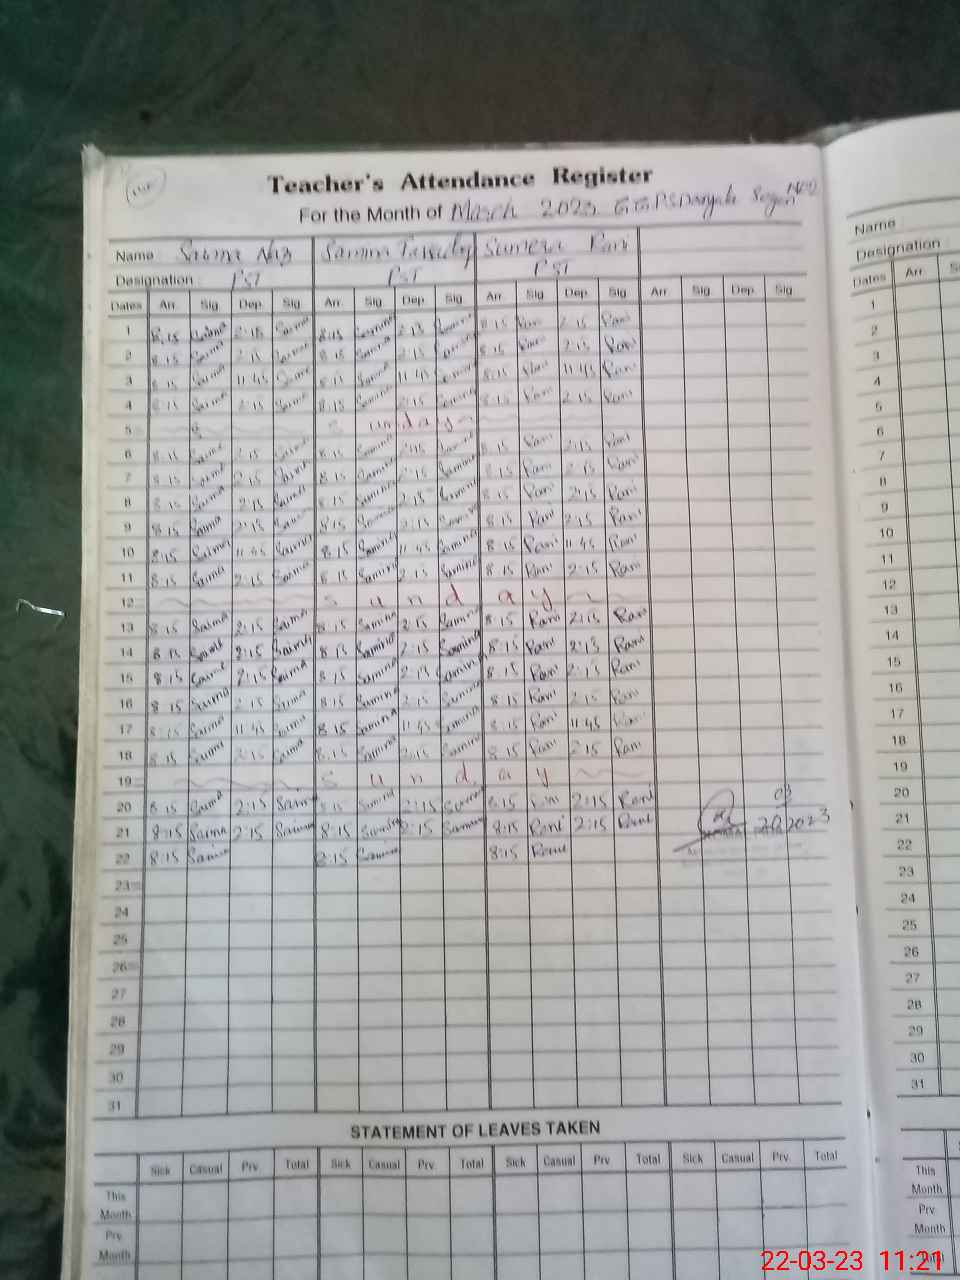 Teacher's Attendance Register
For the Month of March 2023 G.G.P.S
Name Saima Naz Samina Sumera Rani
Designation PST PST PST
Dates Arr. Sig. Dep. Sig. Arr. Sig. Dep. Sig. Arr. Sig. Dep. Sig. Arr. Sig. Dep. Sig.
1 8:15 Saima 2:15 Saima 8:15 Samina 2:15 Samina 8:15 Rani 2:15 Rani
2 8:15 Saima 2:15 Saima 8:15 Samina 2:15 Samina 8:15 Rani 2:15 Rani
3 8:15 Saima 11:45 Saima 8:15 Samina 11:45 Samina 8:15 Rani 11:45 Rani
4 8:15 Saima 2:15 Saima 8:15 Samina 2:15 Samina 8:15 Rani 2:15 Rani
5 Sunday
6 8:15 Saima 2:15 Saima 8:15 Samina 2:15 Samina 8:15 Rani 2:15 Rani
7 8:15 Saima 2:15 Saima 8:15 Samina 2:15 Samina 8:15 Rani 2:15 Rani
8 8:15 Saima 2:15 Saima 8:15 Samina 2:15 Samina 8:15 Rani 2:15 Rani
9 8:15 Saima 2:15 Saima 8:15 Samina 2:15 Samina 8:15 Rani 2:15 Rani
10 8:15 Saima 11:45 Saima 8:15 Samina 11:45 Samina 8:15 Rani 11:45 Rani
11 8:15 Saima 2:15 Saima 8:15 Samina 2:15 Samina 8:15 Rani 2:15 Rani
12 Sunday
13 8:15 Saima 2:15 Saima 8:15 Samina 2:15 Samina 8:15 Rani 2:15 Rani
14 8:15 Saima 2:15 Saima 8:15 Samina 2:15 Samina 8:15 Rani 2:15 Rani
15 8:15 Saima 2:15 Saima 8:15 Samina 2:15 Samina 8:15 Rani 2:15 Rani
16 8:15 Saima 2:15 Saima 8:15 Samina 2:15 Samina 8:15 Rani 2:15 Rani
17 8:15 Saima 11:45 Saima 8:15 Samina 11:45 Samina 8:15 Rani 11:45 Rani
18 8:15 Saima 2:15 Saima 8:15 Samina 2:15 Samina 8:15 Rani 2:15 Rani
19 Sunday
20 8:15 Saima 2:15 Saima 8:15 Samina 2:15 Samina 8:15 Rani 2:15 Rani 03
21 8:15 Saima 2:15 Saima 8:15 Samina 2:15 Samina 8:15 Rani 2:15 Rani 20 2023
22 8:15 Saima 2:15 Samina 8:15 Rani
23
24
25
26
27
28
29
30
31
STATEMENT OF LEAVES TAKEN
Sick Casual Prv. Total Sick Casual Prv. Total Sick Casual Prv. Total Sick Casual Prv. Total
This Month
Prv. Month
Name
Designation
Dates Arr.
1
2
3
4
5
6
7
8
9
10
11
12
13
14
15
16
17
18
19
20
21
22
23
24
25
26
27
28
29
30
31
This Month
Prv. Month
22-03-23 11:21